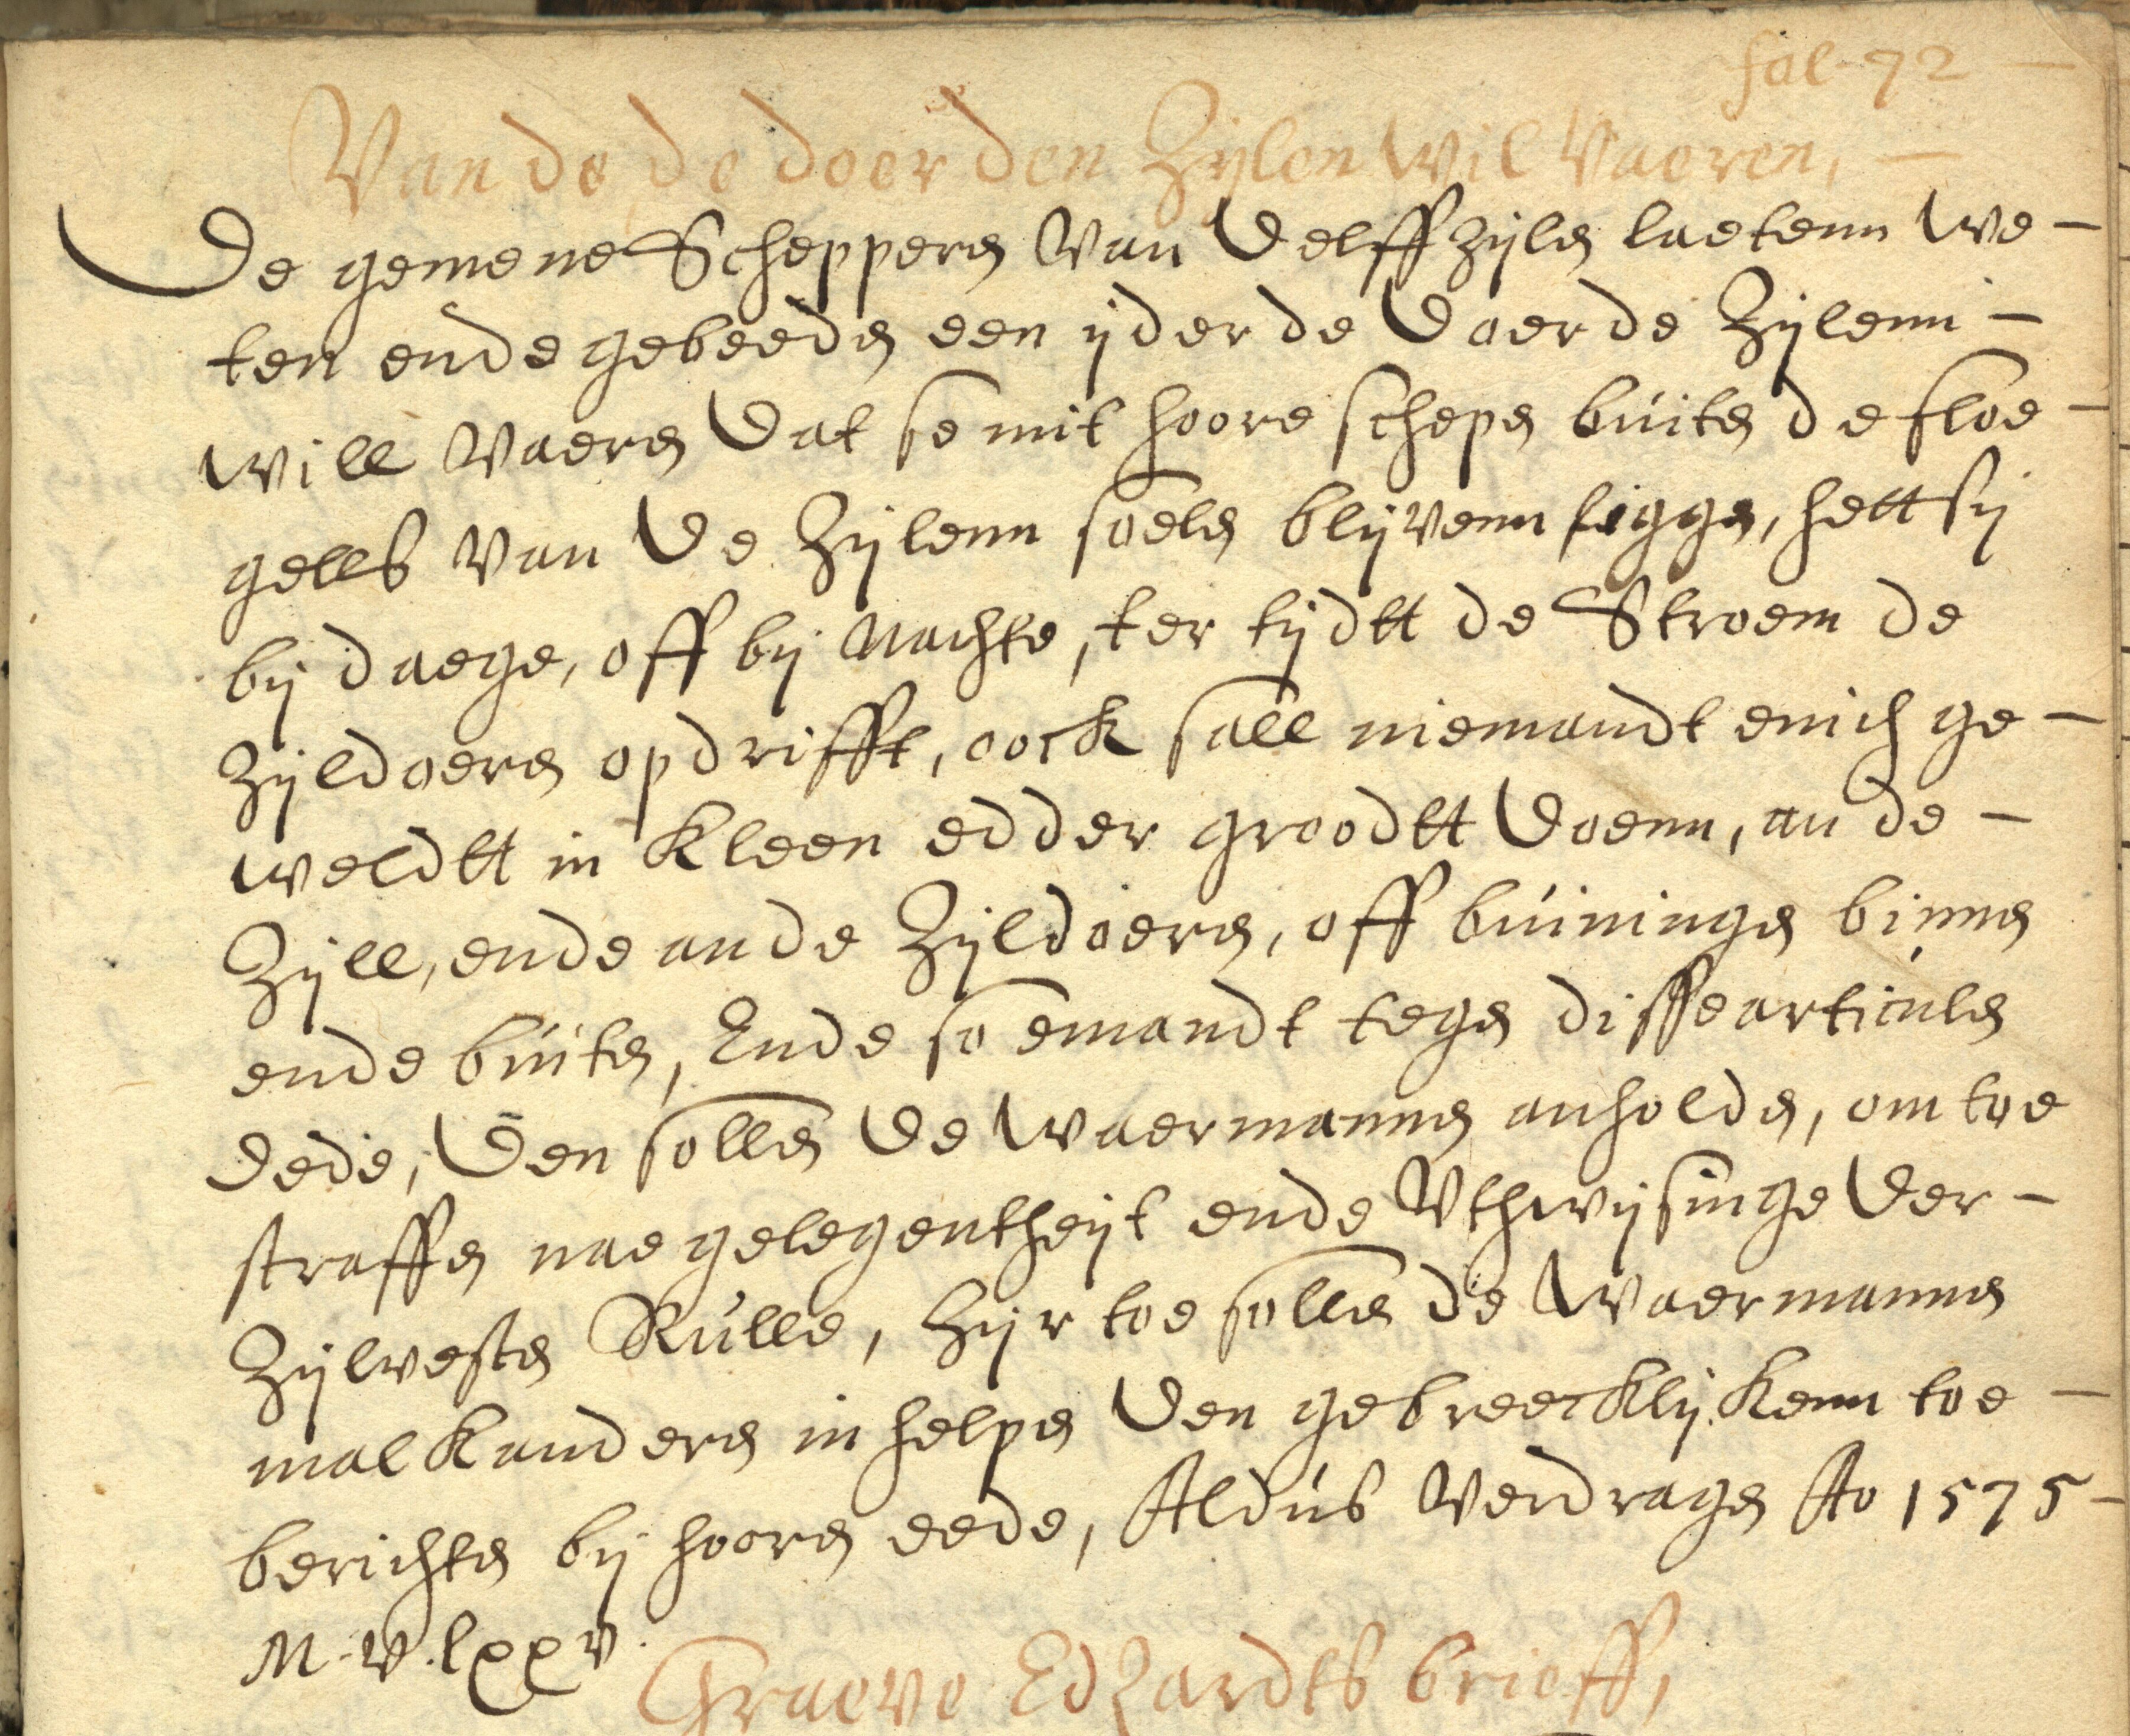 fol. 72 —
Van de, de doer den Zijlen wil Vaeren, —
De gemene Scheppers van Delffzijlen laetenn we-
ten ende gebeeden een ijder de doer de Zijlenn -
will vaeren dat se mit hoore schepen buiten de floe-
gells van de Zijlenn soelen blijvenn liggen, hett sij
bij daege, off bij nachte, ter tijdtt de Stroem de
Zijldoeren opdrifft, oock sall niemandt enich ge-
weldtt in kleen edder groodtt doenn, an de -
Zijll, ende an de Zijldoeren, off buiningen binnen
ende buiten, Ende so emandt tegen disse articulen
dede, den sollen de waermannen anholden, om toe
straffen nae gelegentheijt ende Uthwijsinge der -
Zijlvesten Rulle, hijr toe sollen de Waermannen
malkanderen in helpen den gebreecklijkenn toe -
berichten bij hooren eede, Aldus verdragen Ao 1575 -
M.V.lxxv.
Graeve Edzardts brieff,